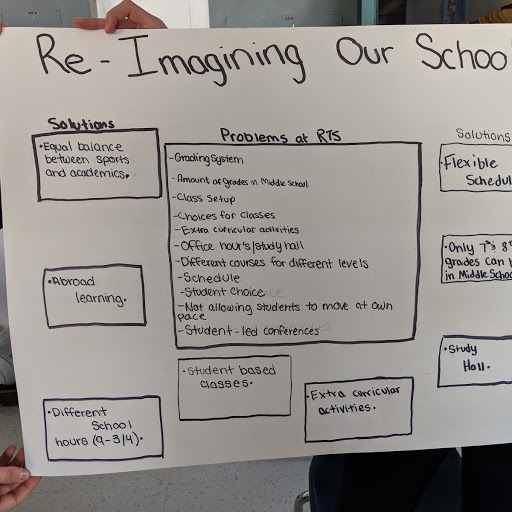 Re-Imagining Our Schoo
Solutions
•Equal balance
between sports
and academics.
•Abroad
learning.
•Different
School
hours (9-3/4).
Problems at RTS
-Grading System
-Amount of grades in Middle School
-Class Setup
-Choices for classes
-Extra curricular activities
-Office hour's/study hall
-Different courses for different levels
-Schedule
-Student Choice
-Not allowing students to move at own
pace
-Student-led conferences
•Student based
classes.
•Extra curricular
activities.
Solutions
•Flexible
Schedul
•Only 7th & 8
grades can b
in Middle Schoo
•Study
Hall.